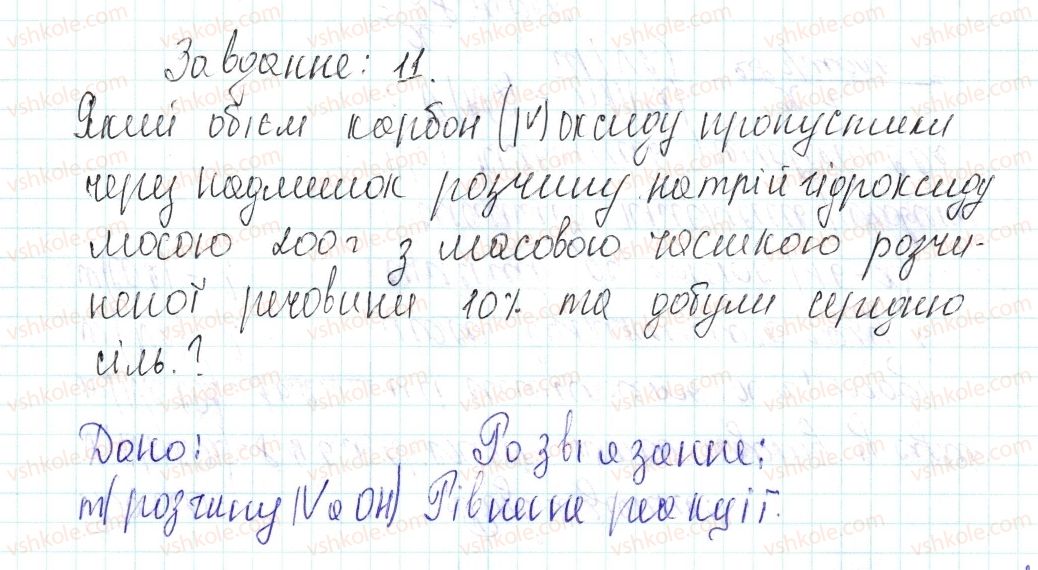 Завдання: 11.
Який обієм карбон (IV) оксиду пропустили
через надлишок розчину натрій гідроксиду
масою 200г з масовою часткою розчи-
неної речовини 10% та добули середню
сіль.?
Дано: Розвіязання:
m(розчину NaOH) Рівняння реакції.